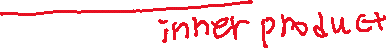 inner product